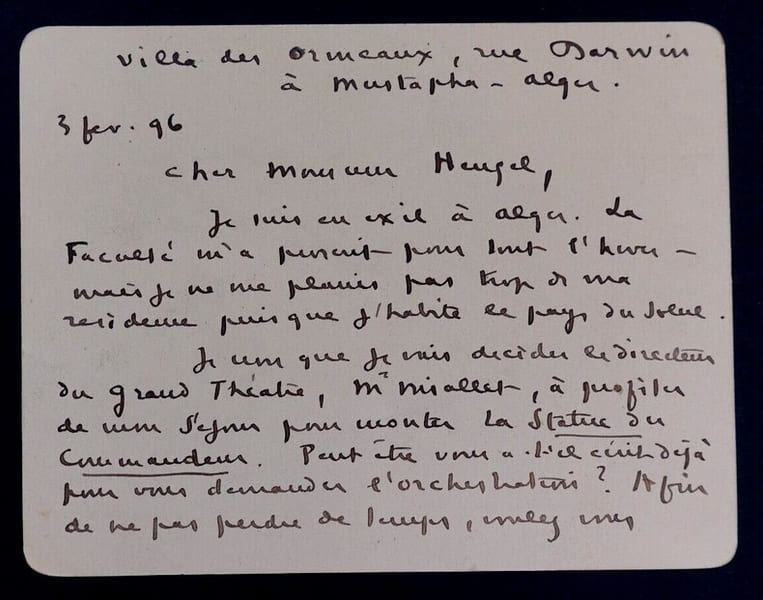 Villa des Ormeaux, rue Darwin
à Mustapha - Alger.
3 fev. 96
Cher Monsieur Heugel,
Je suis en exil à Alger. La
Faculté m'a prescrit pour tout l'hiver -
mais je ne me plains pas trop de ma
residence puisque j'habite le pays du soleil.
Je crois que je vais decider le directeur
du Grand Théatre, Mr Miallet, à profiter
de mon sejour pour monter La Statue du
Commandeur. Peut être vous a-t-il écrit déjà
pour vous demander l'orchestration? Afin
de ne pas perdre de temps, voulez vous